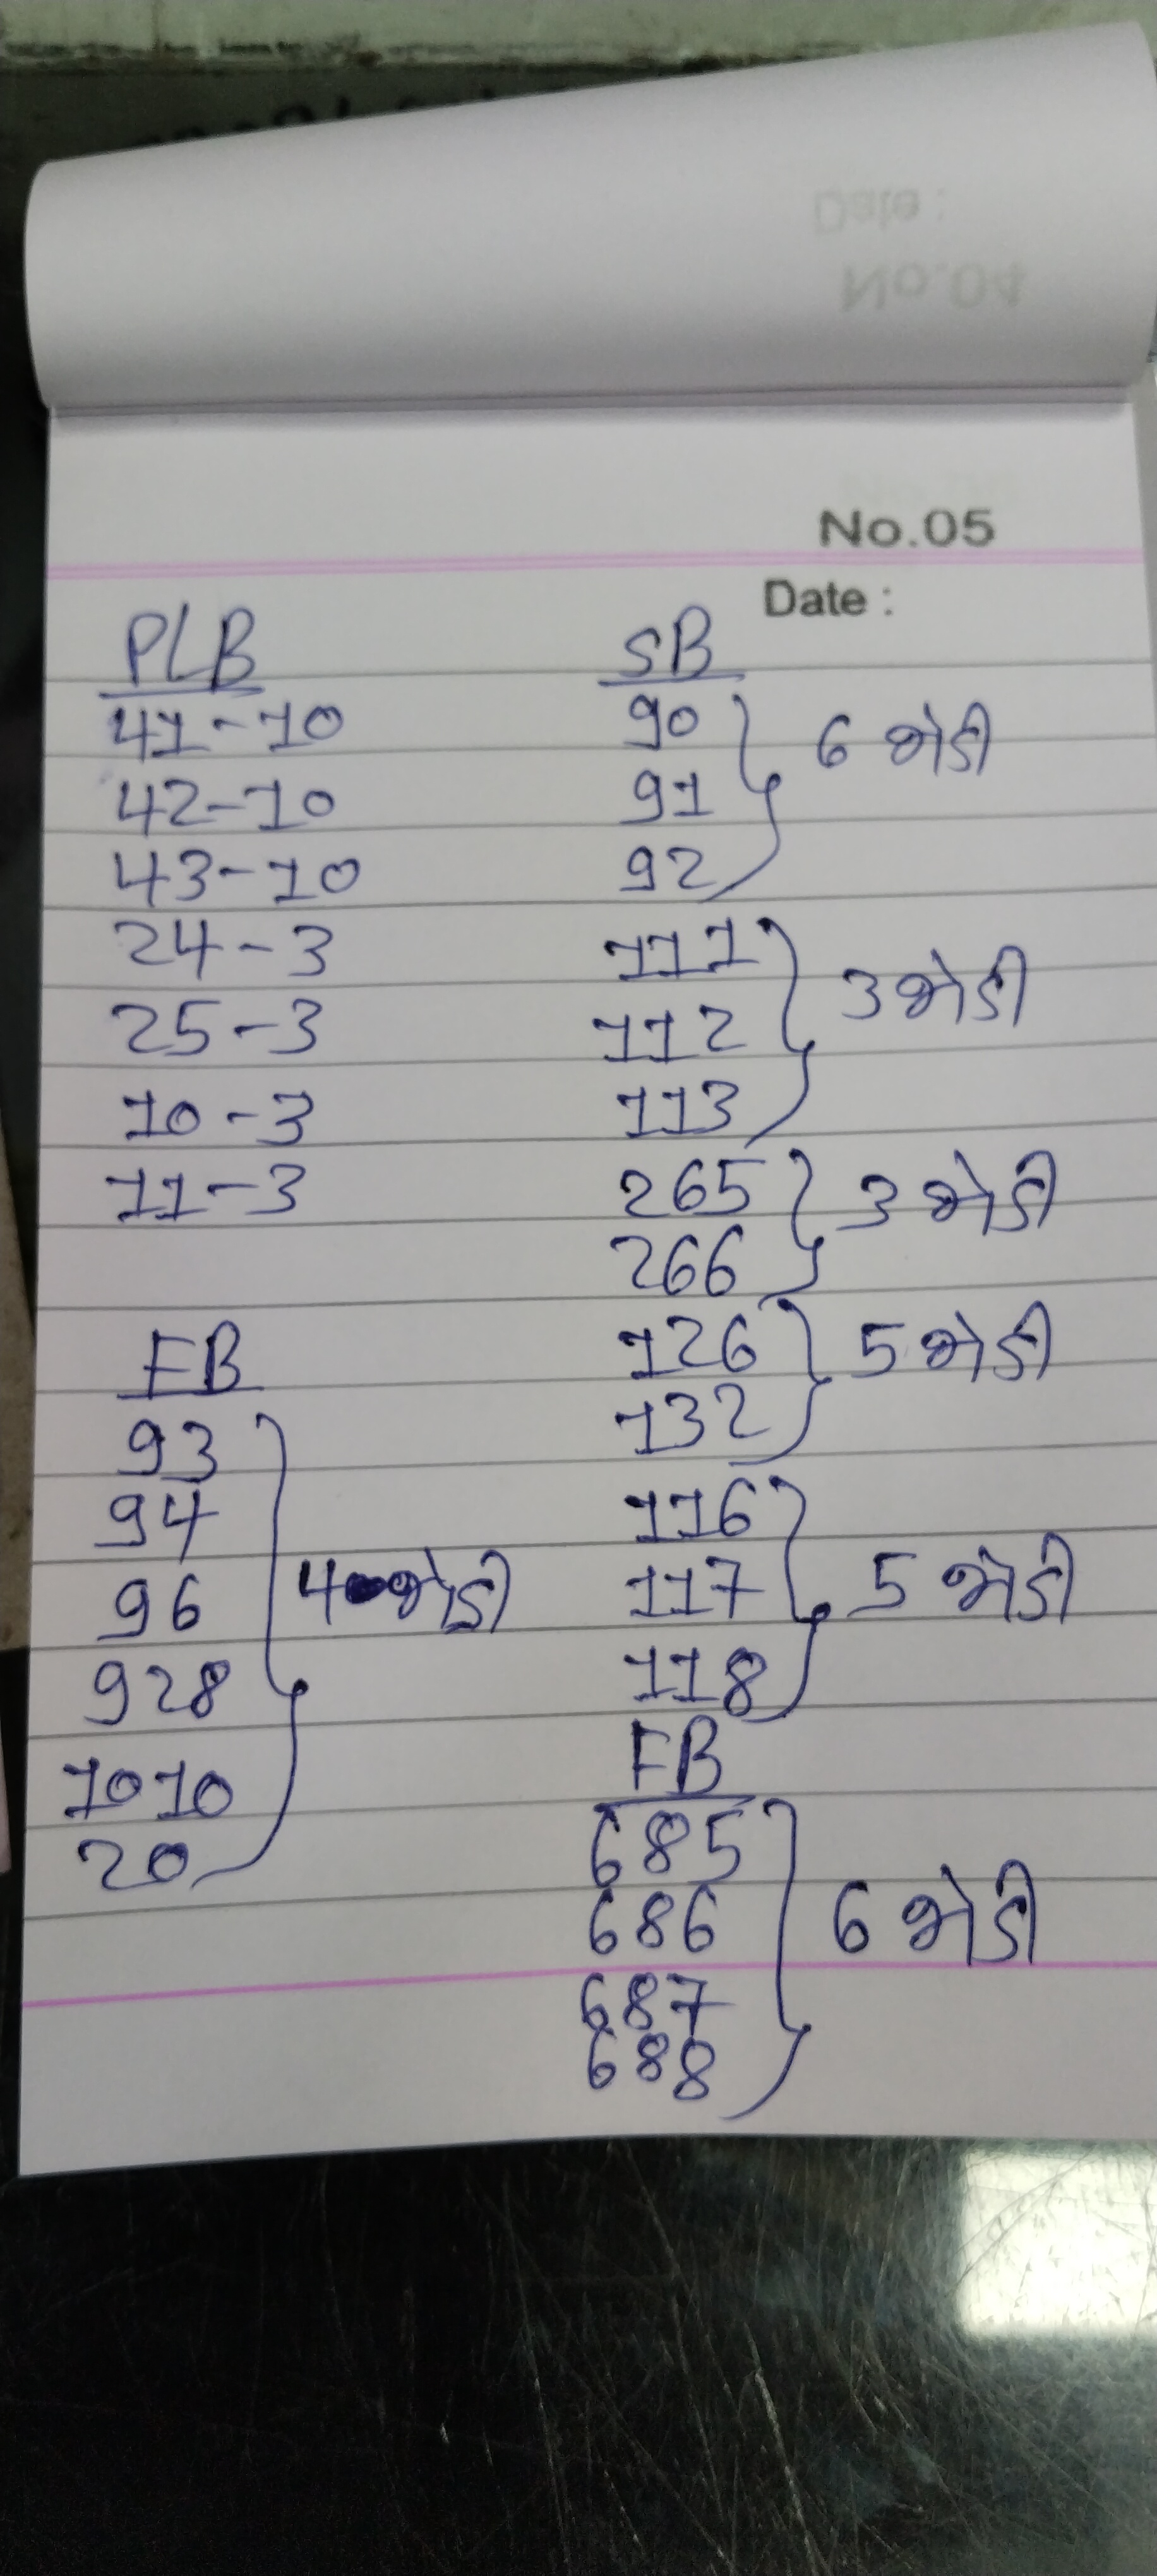 No.05
Date :
PLB
41-10
42-10
43-10
24-3
25-3
10-3
11-3
FB
93
94
96
928
1010
20
4 જોડી
SB
90
91
92
6 જોડી
111
112
113
3 જોડી
265
266
3 જોડી
126
132
5 જોડી
116
117
118
5 જોડી
FB
685
686
687
688
6 જોડી